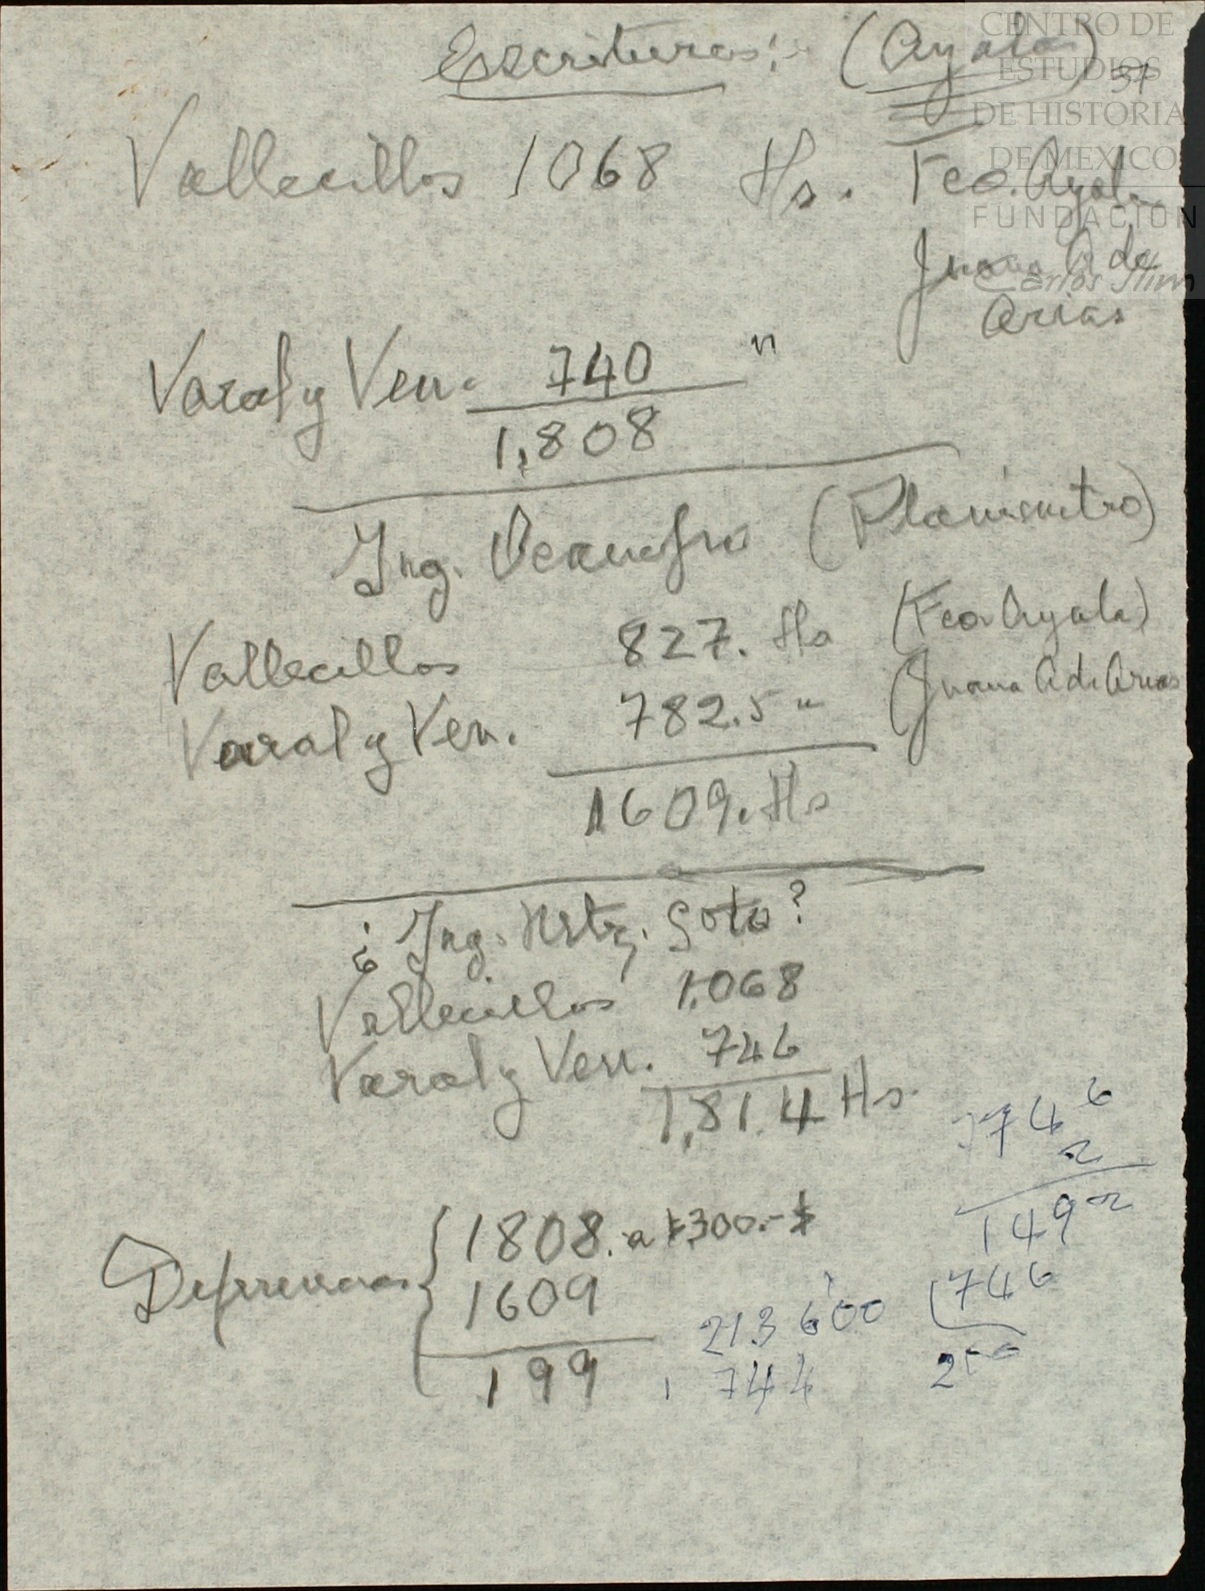 Escrituras: (Ayala)
57
CENTRO DE
ESTUDIOS
DE HISTORIA
DE MEXICO
FUNDACION
Carlos Slim
Vallecillos 1068 Hs. Fco. Ayala
Juana A de
Arias
Varal y Ven. 740 "
1,808
Ing. (Planimetro)
Vallecillos 827. Hs (Fco Ayala)
Varal y Ven. 782.5 " (Juana A de Arias
1609. Hs
¿Ing. Mtz. Soto?
Vallecillos 1.068
Varal y Ven. 746
1,814 Hs.
746
2
1492
Diferencia { 1808. a $300.-
1609
199
213600 746
744 2